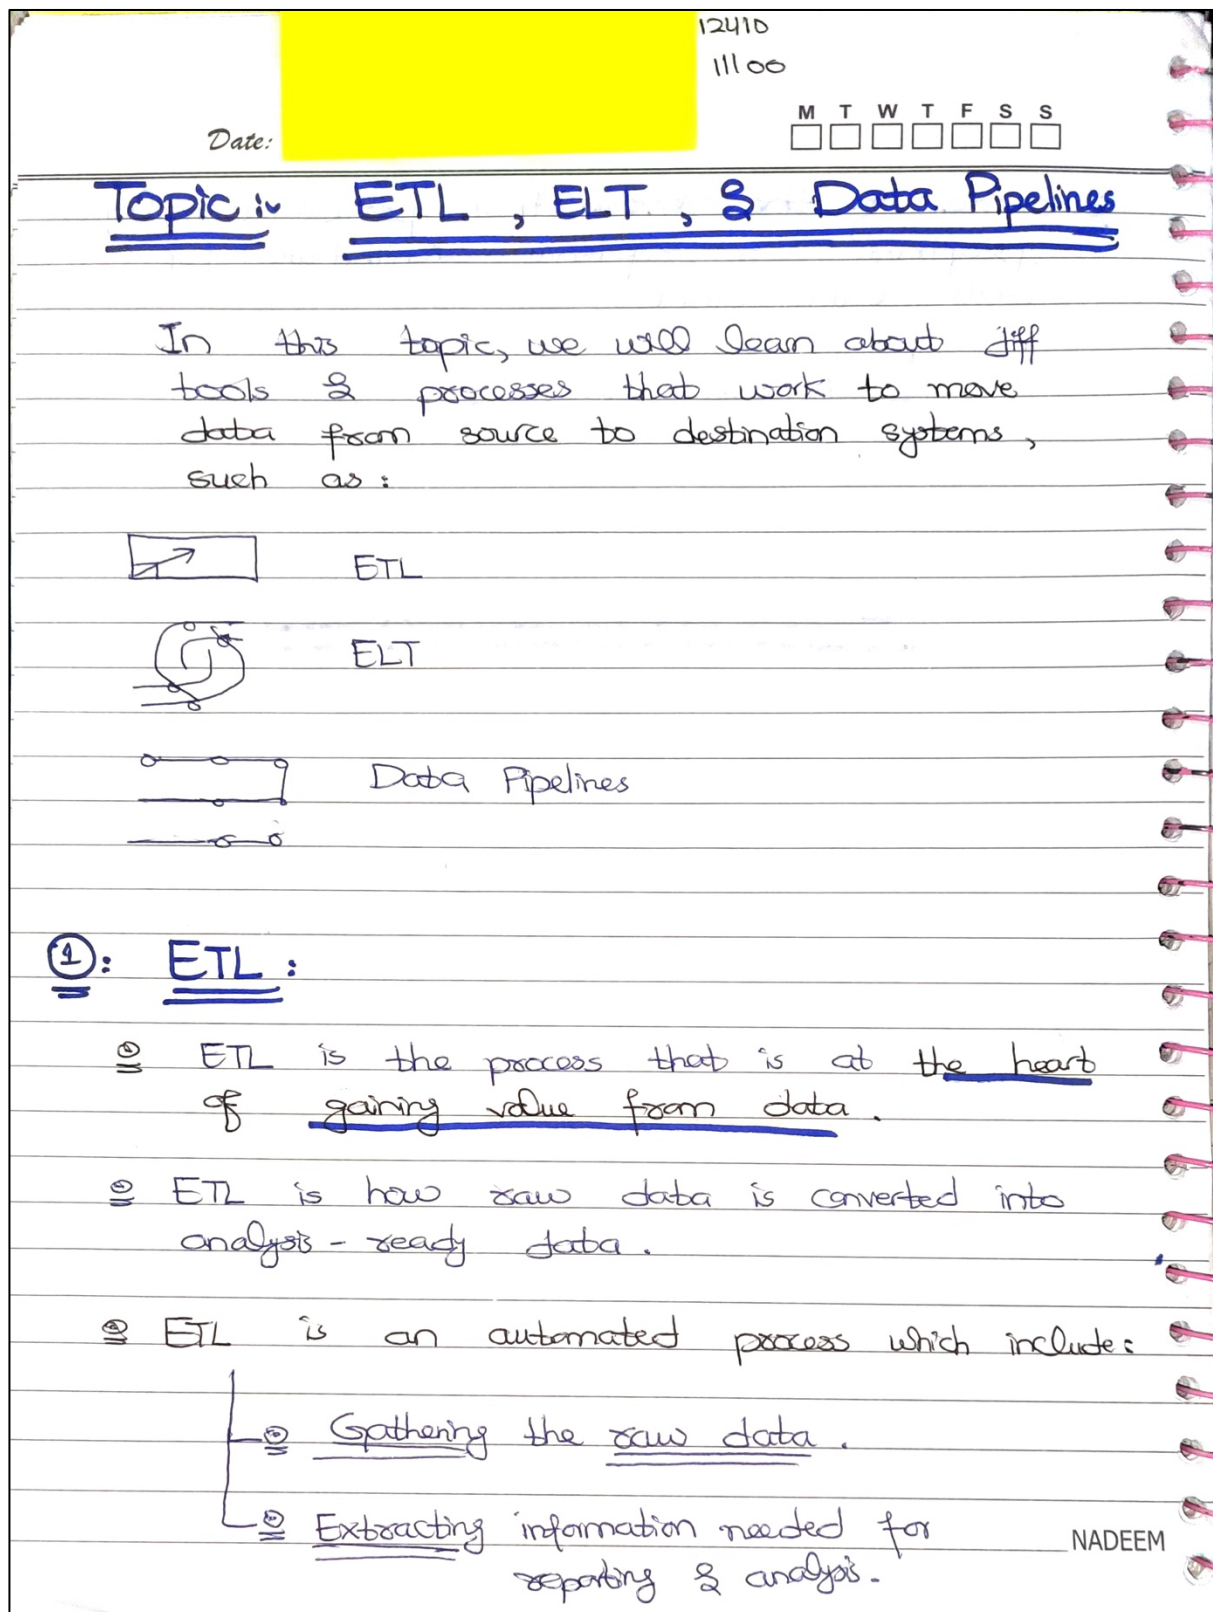 12410
11100
M T W T F S S
Date:
Topic :- ETL , ELT , & Data Pipelines
In this topic, we will learn about diff
tools & processes that work to move
data from source to destination systems,
such as :
ETL
ELT
Data Pipelines
1 : ETL :
ETL is the process that is at the heart
of gaining value from data .
ETL is how raw data is converted into
analysis - ready data .
ETL is an automated process which include :
Gathering the raw data .
Extracting information needed for
reporting & analysis .
NADEEM